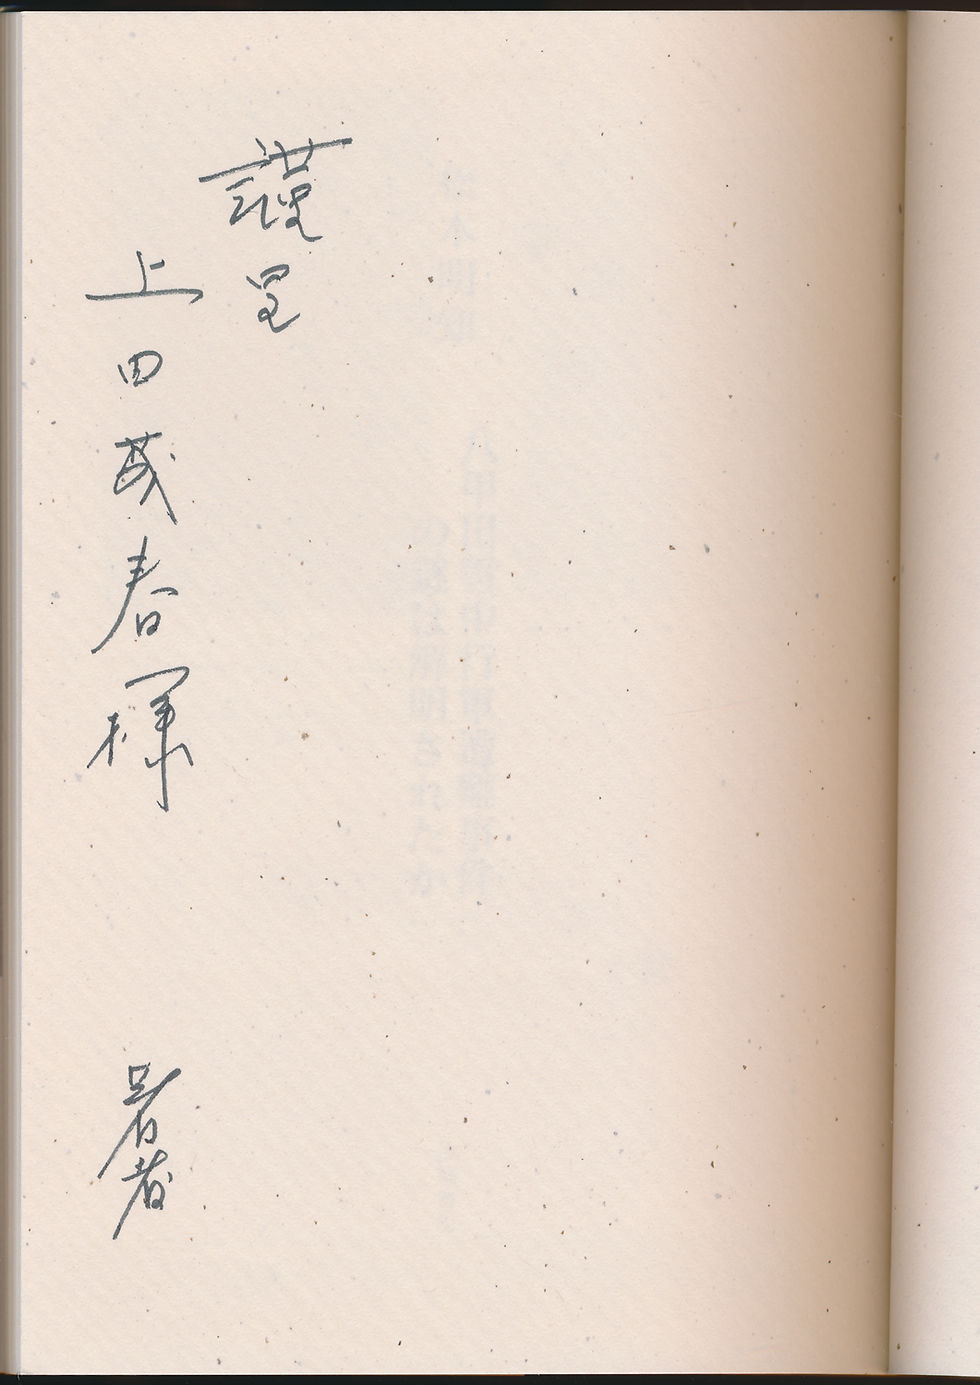 謹呈
上田茂春様
著者